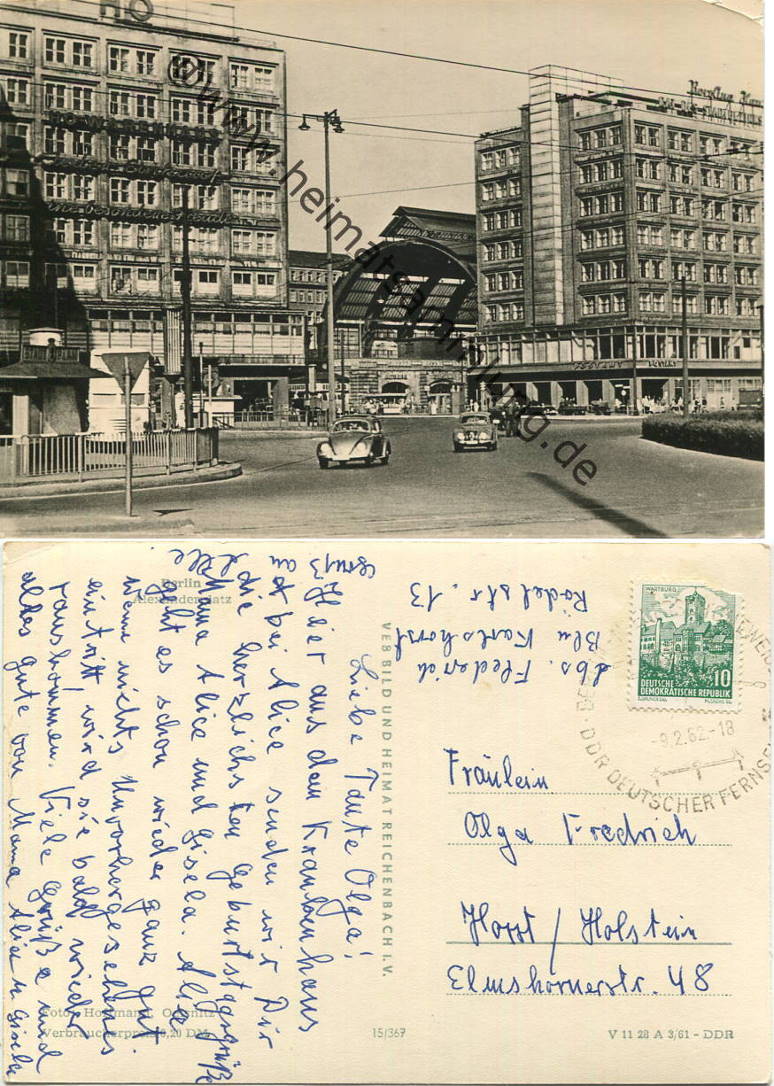 HO
HO WARENHAUS
© www.heimatsammlung.de
Berlin
Alexanderplatz
Liebe Tante Olga!
Hier aus dem Krankenhaus
bei Alice senden wir Dir
die herzlichsten Geburtstagsgrüße
Mama Alice und Gisela. Alice
geht es schon wieder ganz gut.
Wenn nichts Unvorhergesehenes
eintritt, wird sie bald wieder
rauskommen. Viele Grüße und
alles gute von Mama Alice u Gisela
VEB BILD UND HEIMAT REICHENBACH I. V.
Abs. Flederich
Bln Karlshorst
Rödelstr. 13
WARTBURG
DEUTSCHE
DEMOKRATISCHE REPUBLIK
10
9.2.62-18
DDR DEUTSCHER FERNSE
Fräulein
Olga Fredrich
Horst/Holstein
Elmshornerstr. 48
Verbraucherpreis 0,20 DM
15/367
V 11 28 A 3/61 - DDR